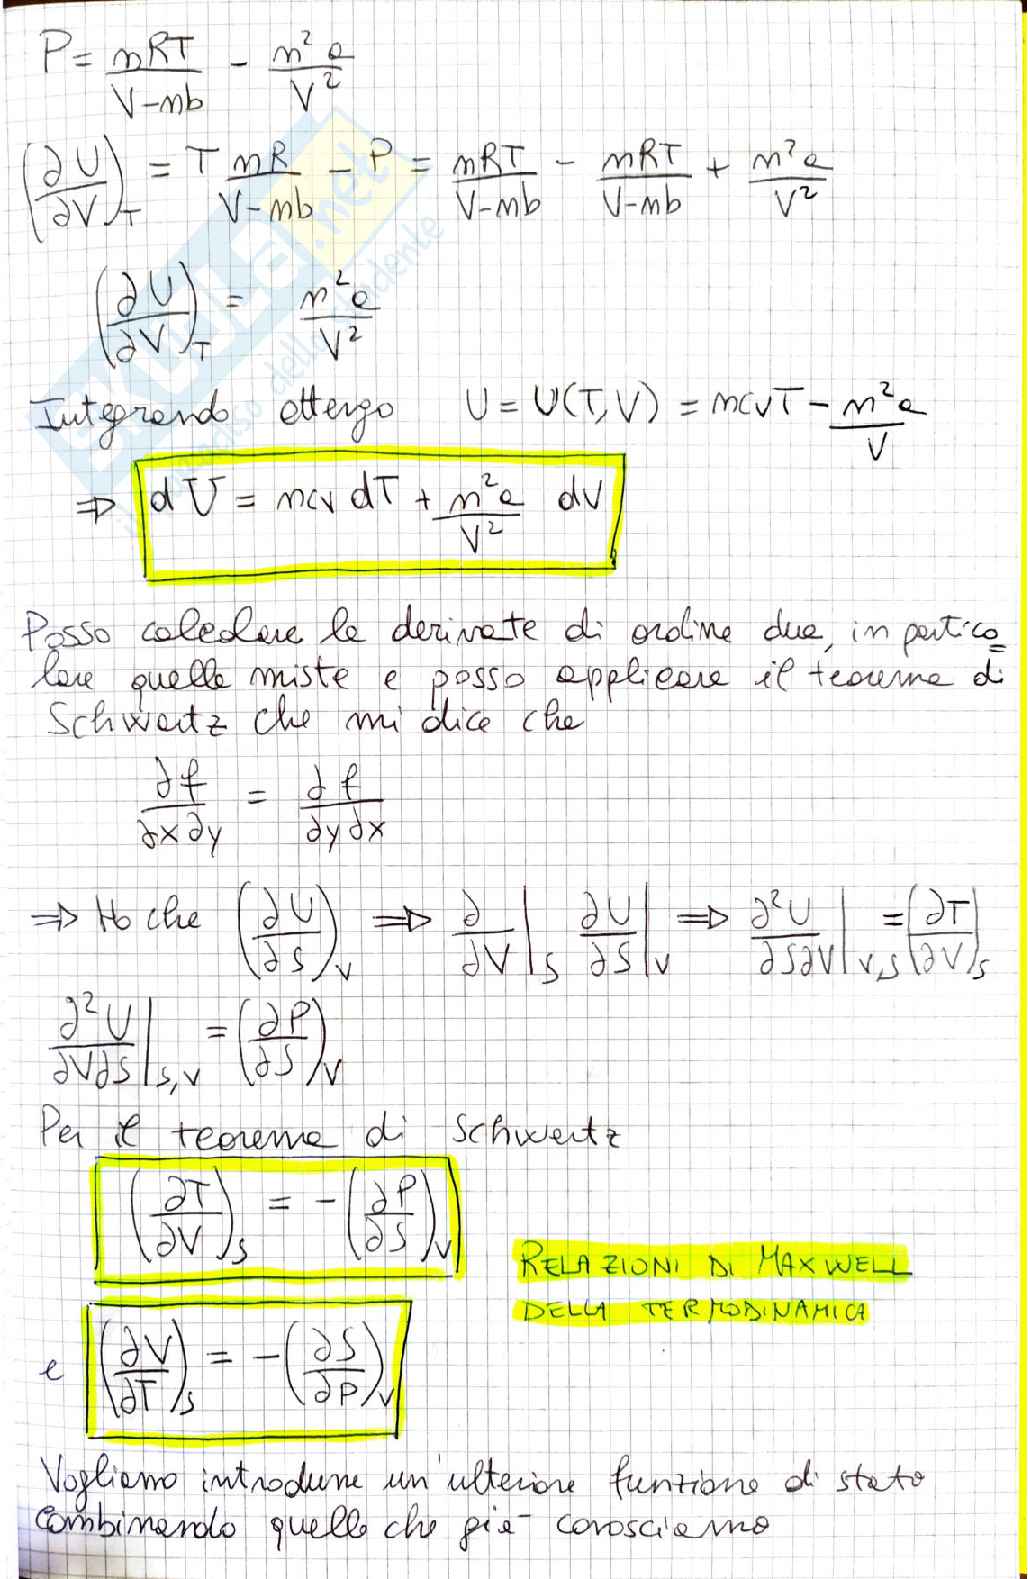 P = nRT/(V-nb) - n²a/V²
(∂U/∂V)_T = T nR/(V-nb) - P = nRT/(V-nb) - nRT/(V-nb) + n²a/V²
(∂U/∂V)_T = n²a/V²
Integrando ottengo U = U(T,V) = ncvT - n²a/V
⇒ dU = ncv dT + n²a/V² dV
Posso calcolare le derivate di ordine due, in partico
lare quelle miste e posso applicare il teorema di
Schwartz che mi dice che
∂f/∂x∂y = ∂f/∂y∂x
⇒ Ho che (∂U/∂S)_V ⇒ ∂/∂V|_S ∂U/∂S|_V ⇒ ∂²U/∂S∂V|_V,S = (∂T/∂V)_S
∂²U/∂V∂S|_S,V = (∂P/∂S)_V
Per il teorema di Schwartz
(∂T/∂V)_S = -(∂P/∂S)_V
RELAZIONI DI MAXWELL
DELLA TERMODINAMICA
e (∂V/∂T)_S = -(∂S/∂P)_V
Vogliamo introdurre un'ulteriore funzione di stato
combinando quelle che già conosciamo